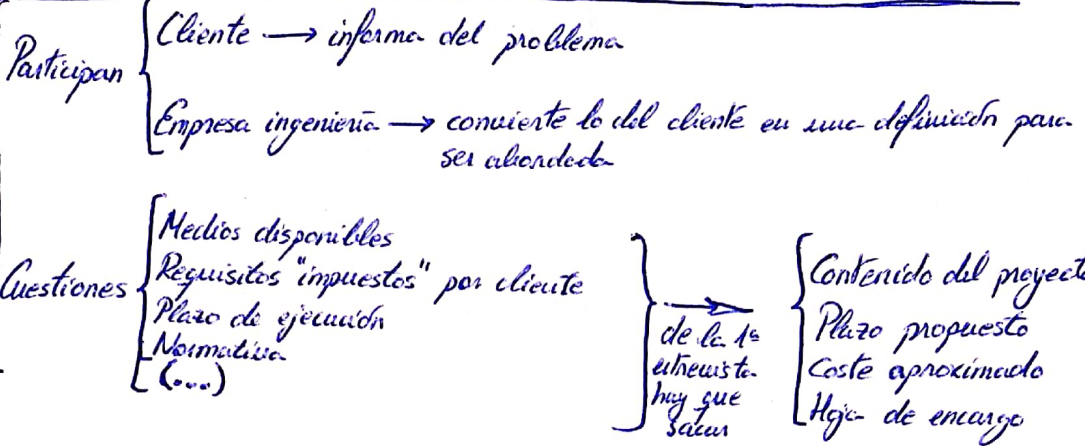 Participan
Cliente → informa del problema
Empresa ingeniería → convierte lo del cliente en una definición para
ser abordada
Cuestiones
Medios disponibles
Requisitos "impuestos" por cliente
Plazo de ejecución
Normativa
(...)
de la 1ª
entrevista
hay que
sacar
Contenido del proyecto
Plazo propuesto
Coste aproximado
Hoja de encargo